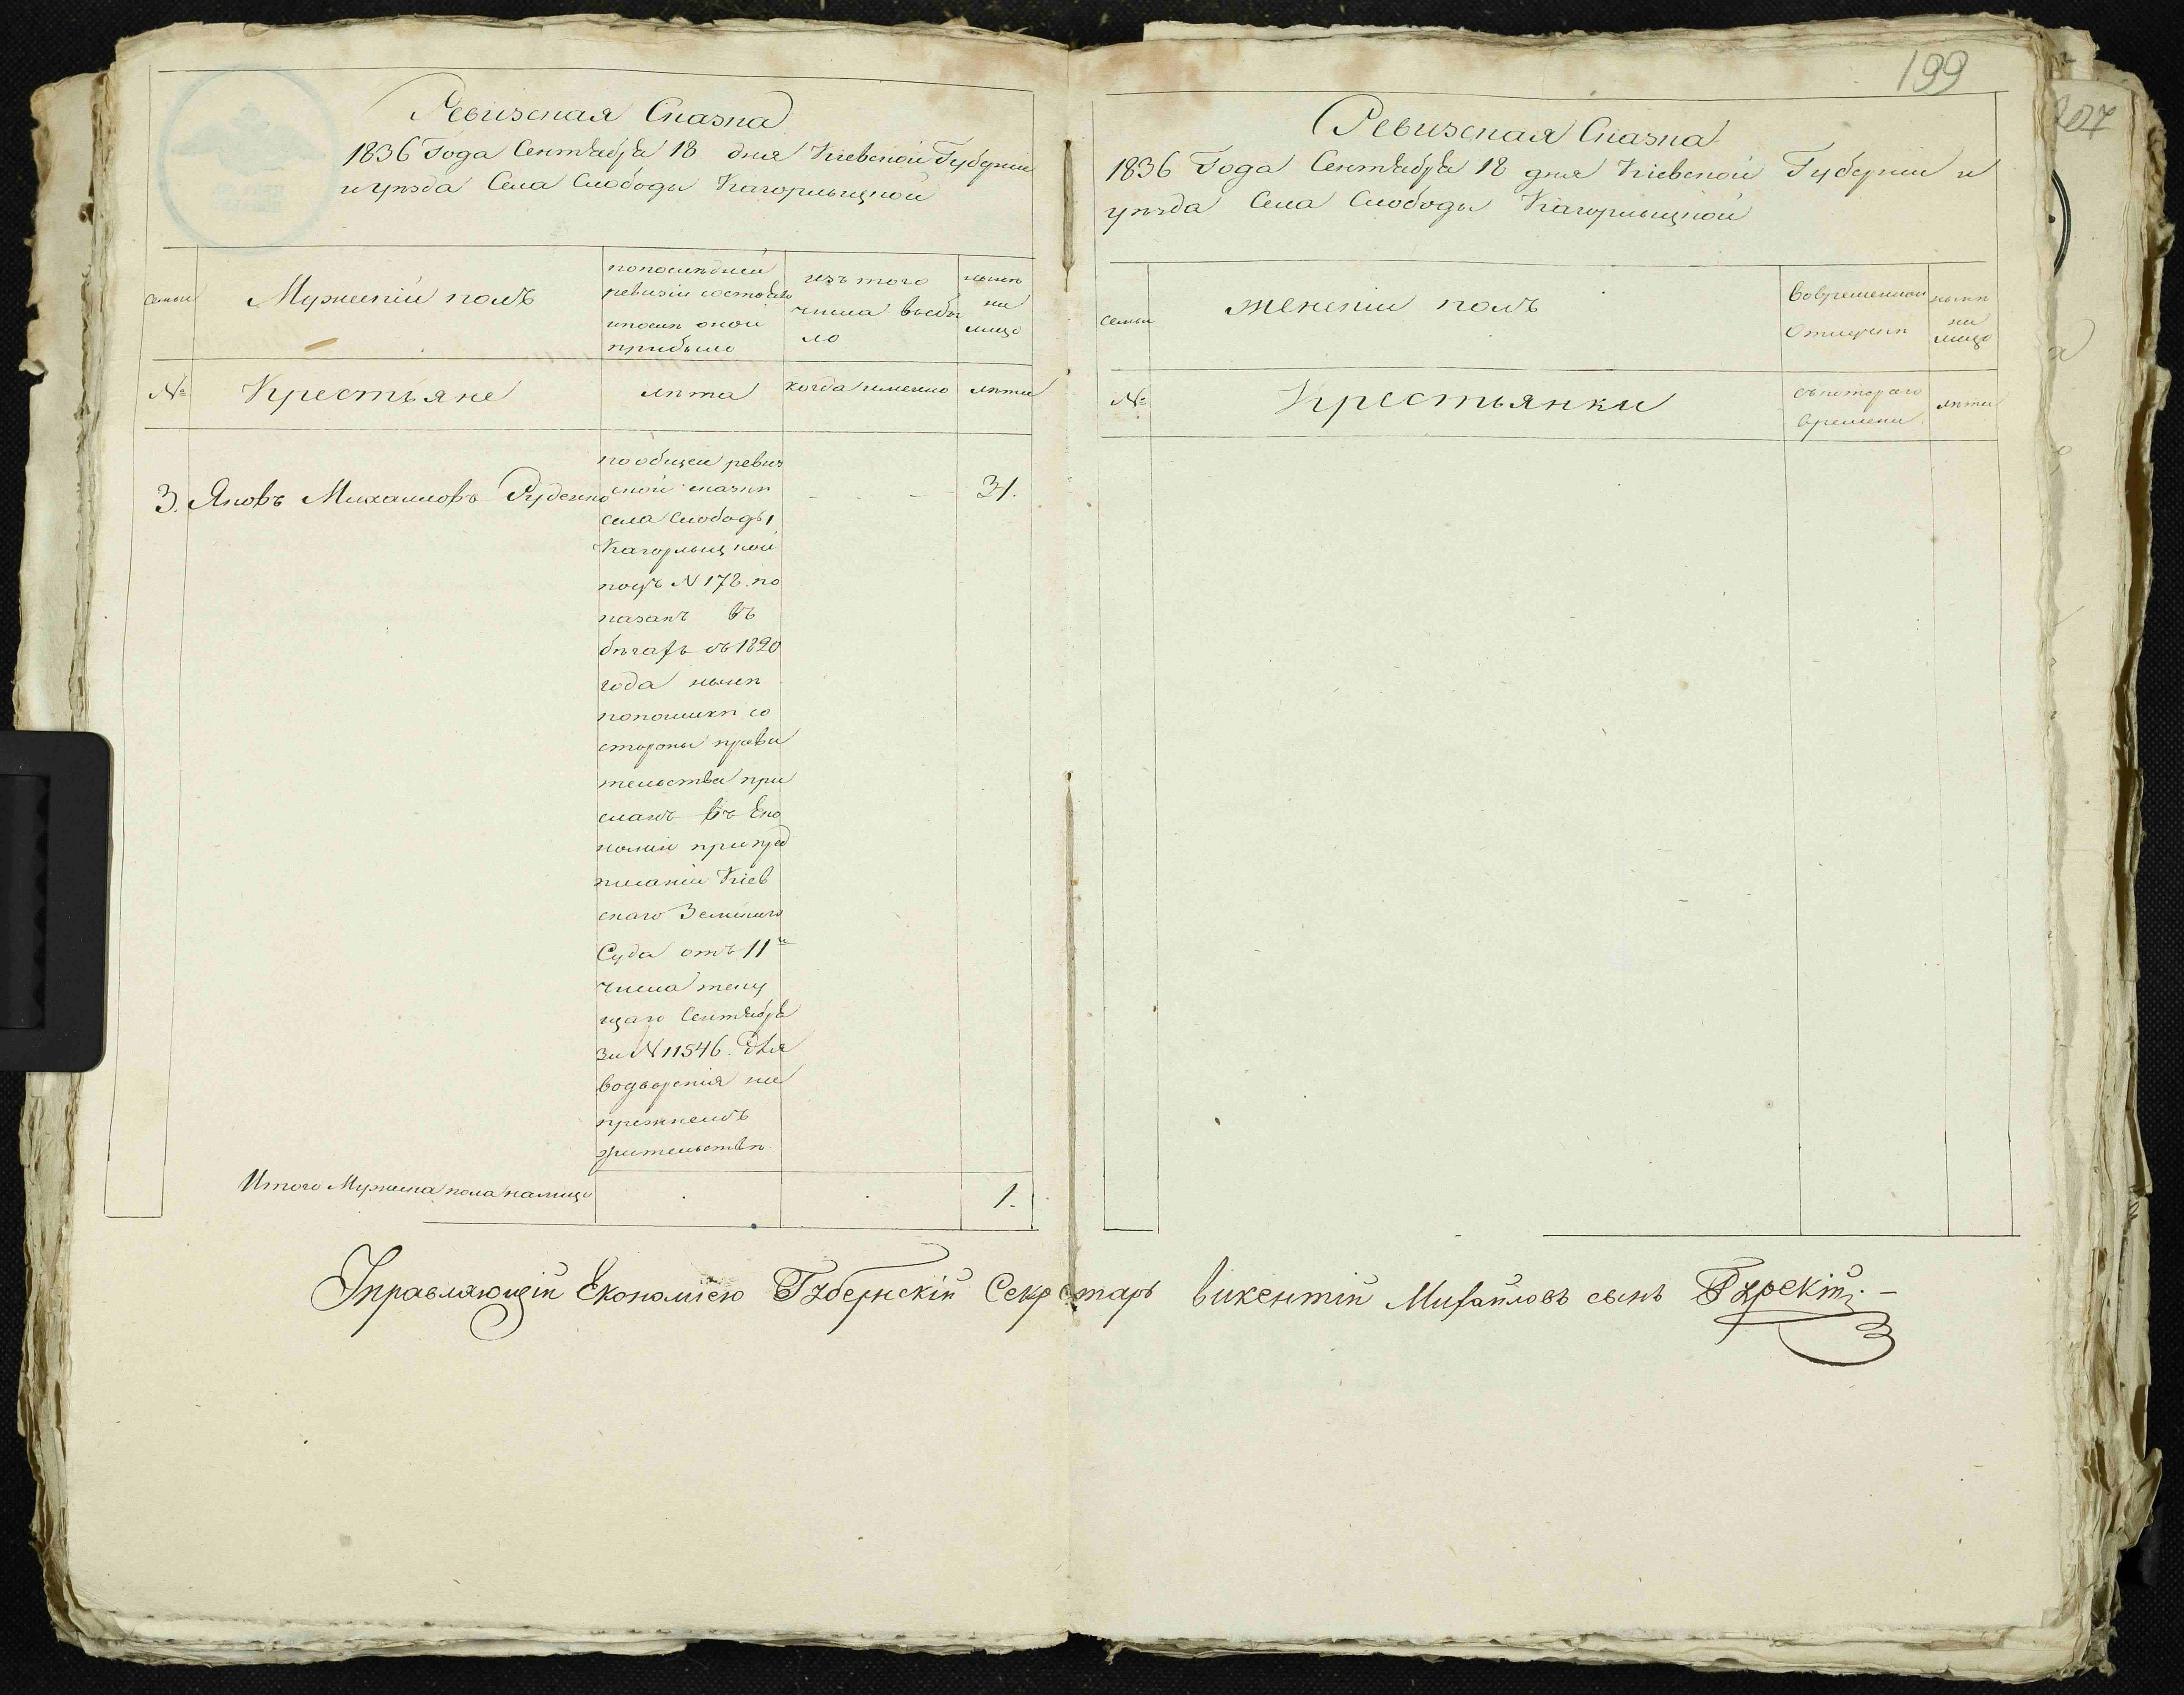 Ревизская Сказка
1836 Года Сентября 18 дня Кіевской Губерніи
и уѣзда Села Слободы Кагорлыцкой
семьи
Мужескій полъ
попослѣдней
ревизіи состояло
ипослѣ оной
прибыло
изъ того
числа выбы
ло
нынѣ
на
лицо
№
Крестьяне
лѣта
когда именно
лѣта
3. Яковъ Михаиловъ Руденко
пообщей ревиз
ской сказкѣ
села Слободы
Кагорлыцкой
подъ N 178. по
казанъ въ
бѣгахъ съ 1820
года нынѣ
попоимкѣ со
стороны прави
тельства при
сланъ въ Еко
номіи припред
писаніи Кіев
скаго Земскаго
Суда отъ 11го
числа теку
щаго Сентября
за N 11546. Для
водворенія на
прежнемъ
жительствѣ
- - -
31.
Итого Мужеска пола налицо
1.
199
Ревизская Сказка
1836 Года Сентября 18 дня Кіевской Губерніи и
уѣзда Села Слободы Кагорлыцкой
семьи
Женскій полъ
вовременной
отлучкѣ
нынѣ
на
лицо
№
Крестьянки
съкотораго
времени
лѣта
Управляющій Економіею Губернскій Секретарь викентій Михайловъ сынъ Гурскій. -
207